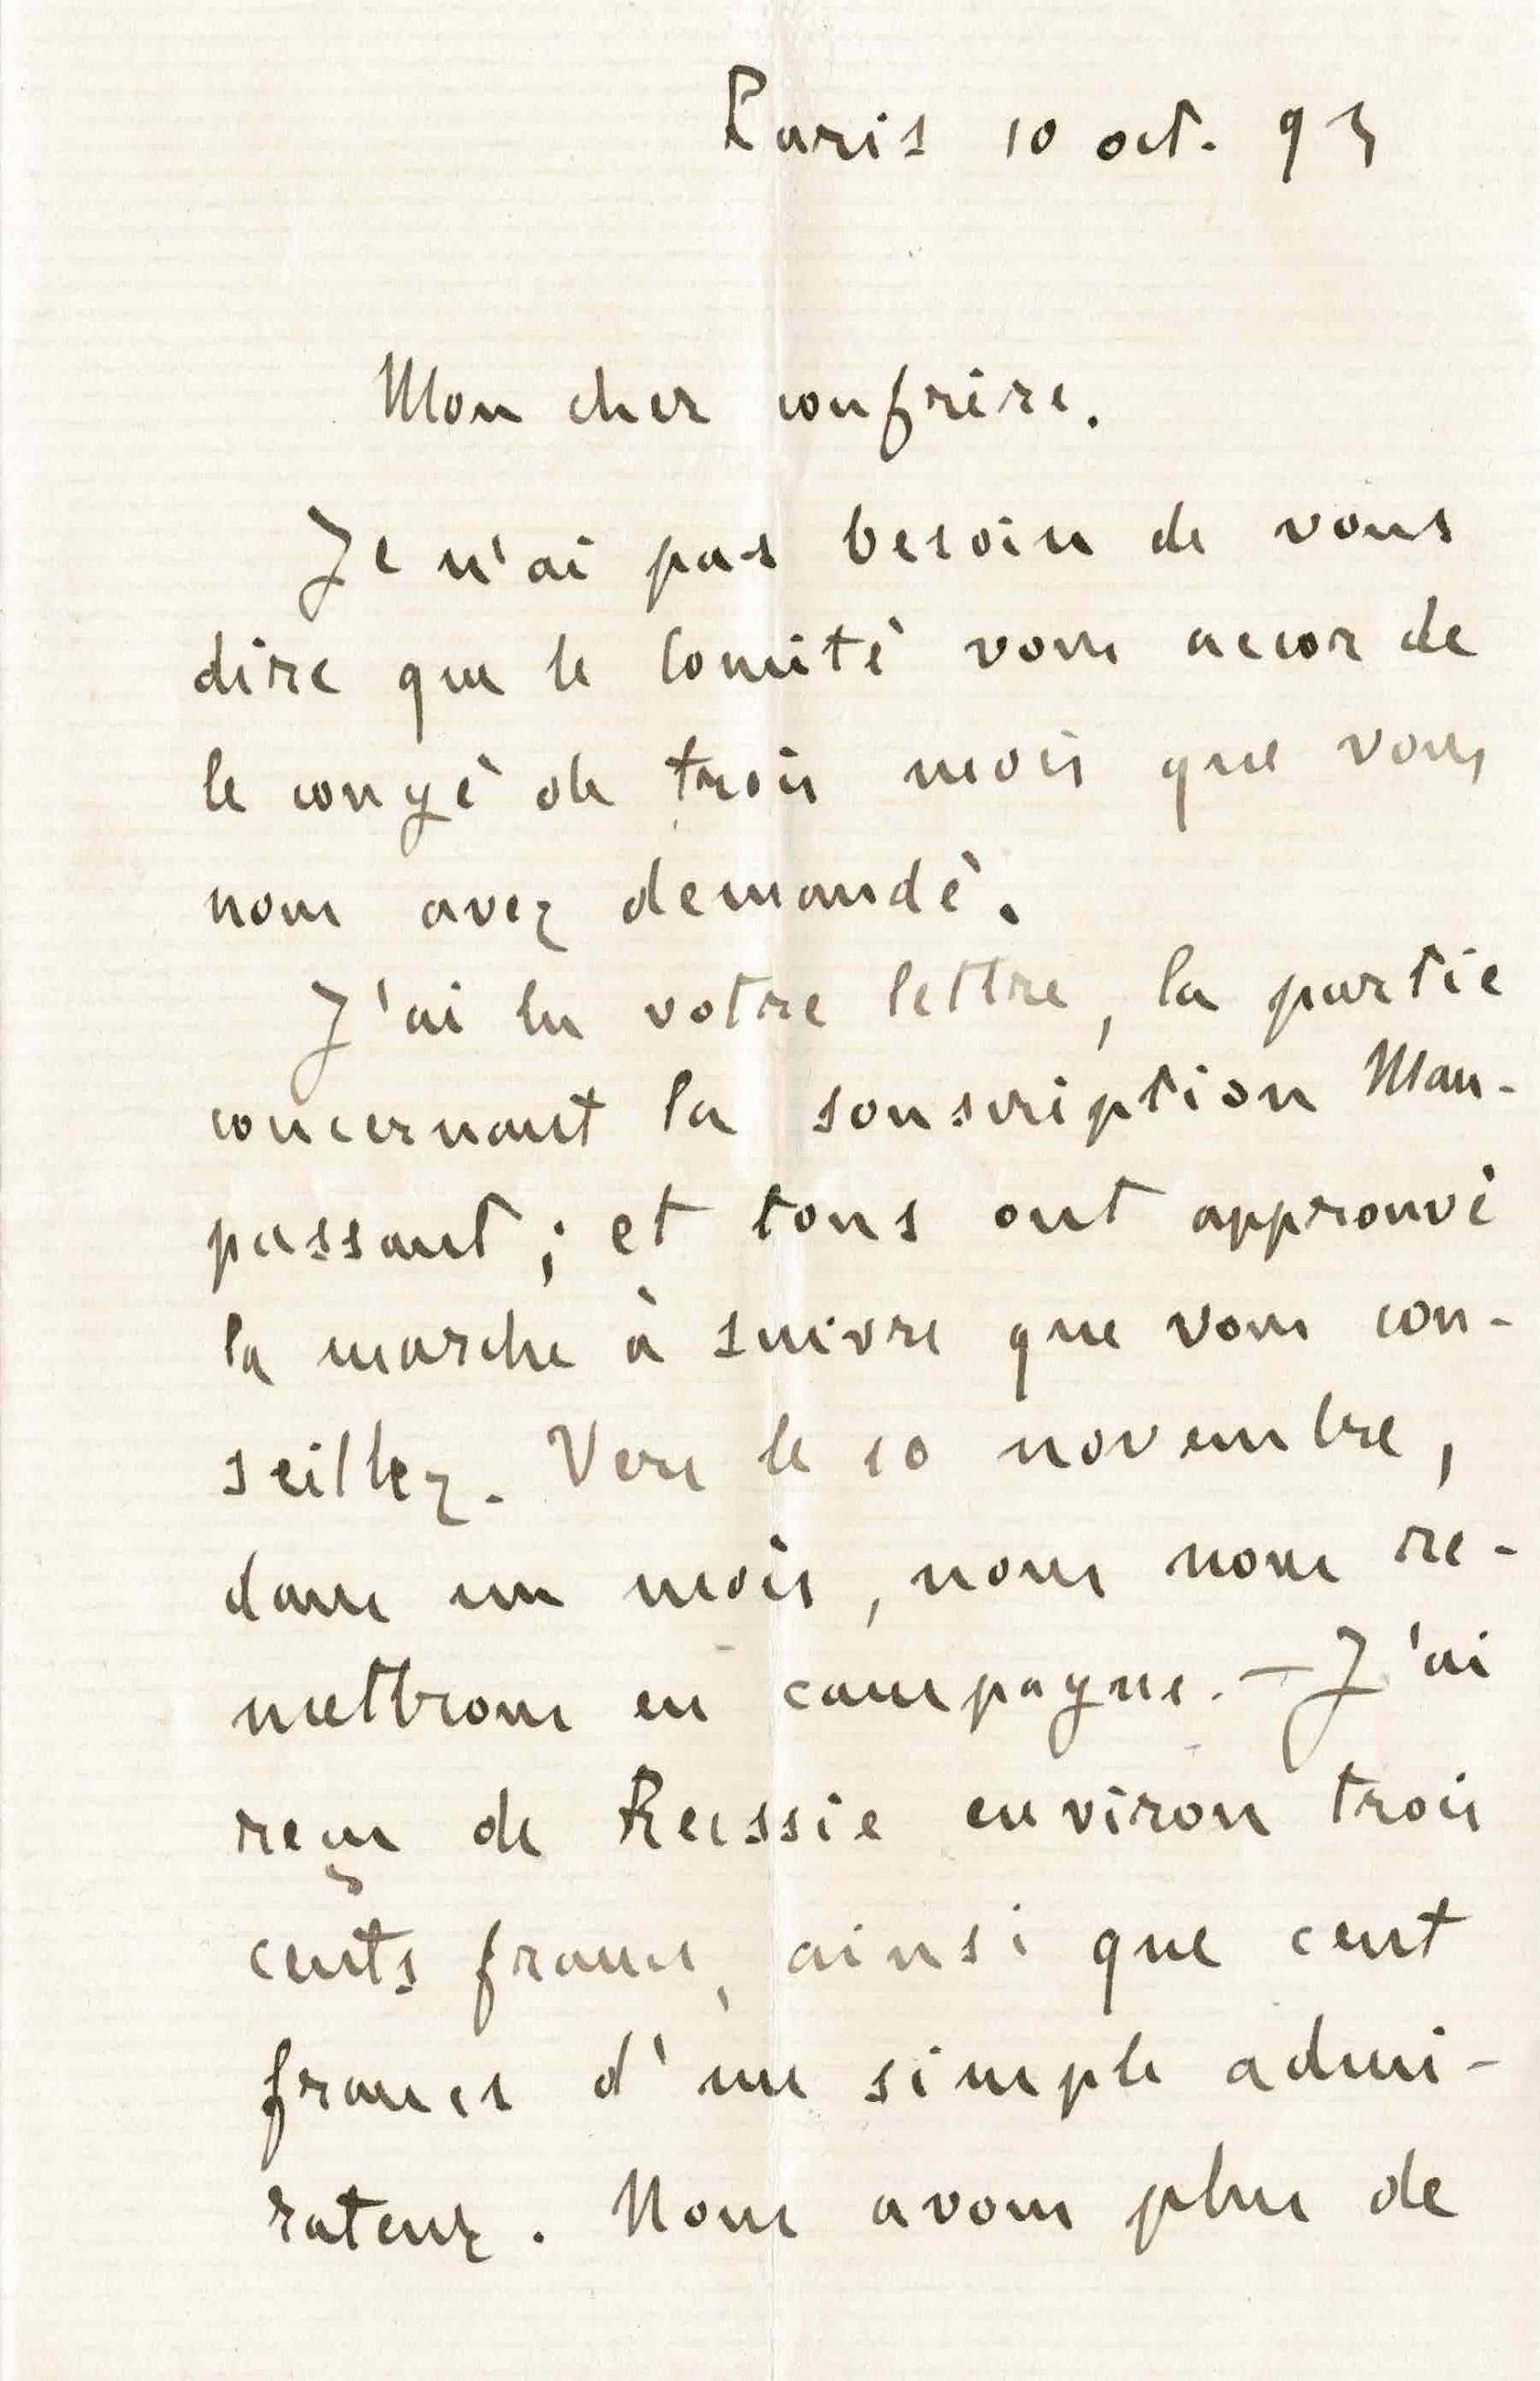 Paris 10 oct. 93
Mon cher confrère.
Je n'ai pas besoin de vous
dire que le Comité vous accorde
le congé de trois mois que vous
nous avez demandé.
J'ai lu votre lettre, la partie
concernant la souscription Mau-
passant ; et tous ont approuvé
la marche à suivre que vous con-
seillez. Vers le 10 novembre,
dans un mois, nous nous re-
mettrons en campagne. — J'ai
reçu de Russie environ trois
cents francs, ainsi que cent
francs d'un simple admi-
rateur. Nous avons plus de